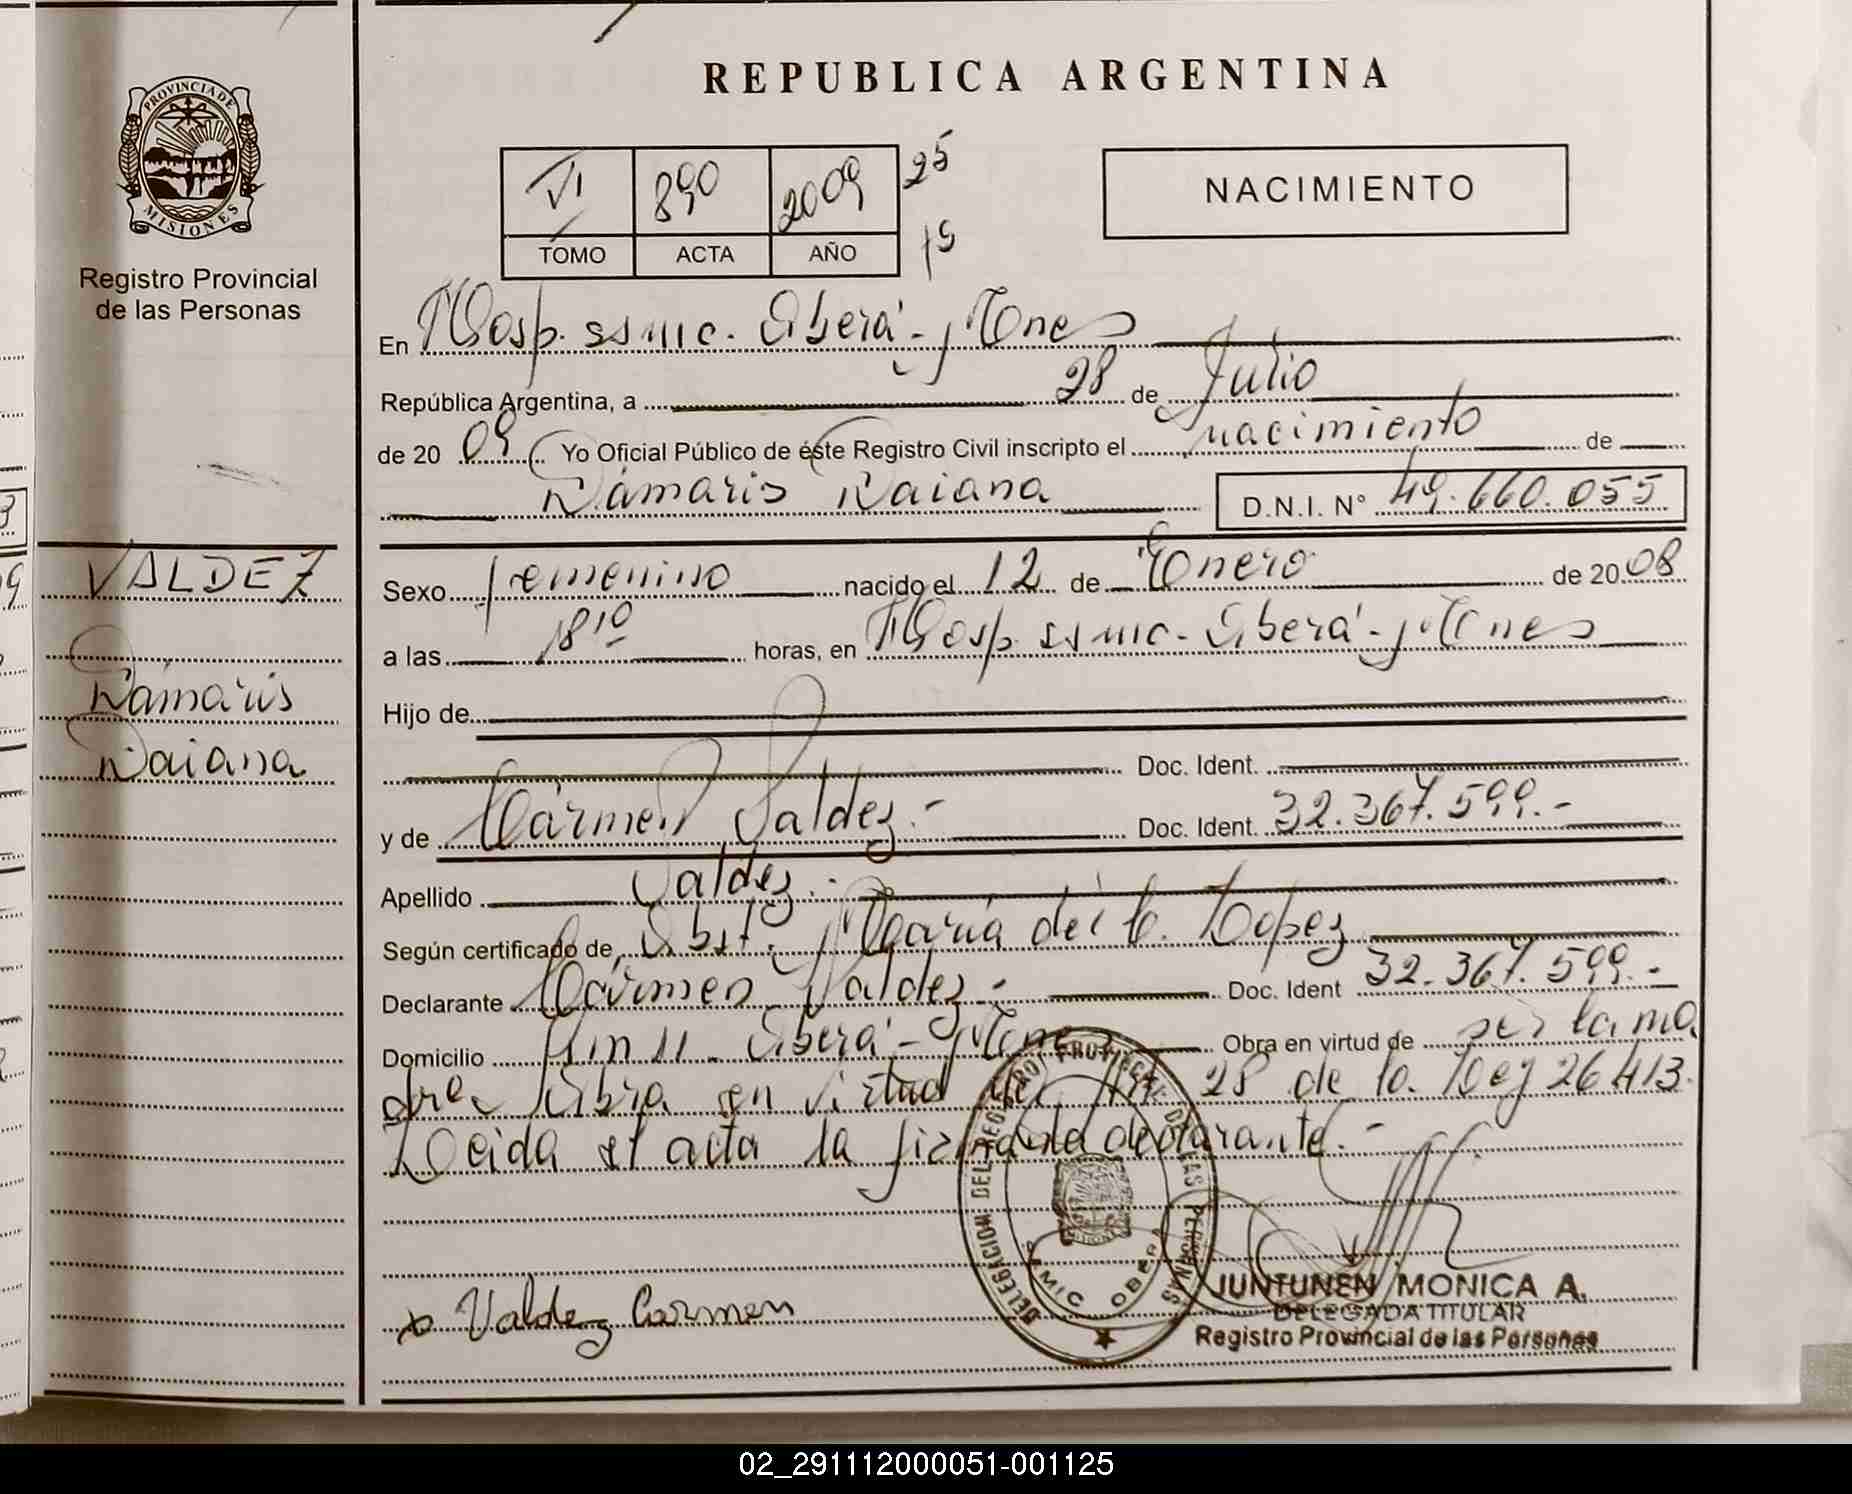 REPUBLICA ARGENTINA
PROVINCIA DE
MISIONES
Registro Provincial
de las Personas
VI 890 2009 25
TOMO ACTA AÑO 19
NACIMIENTO
En Hosp. ssmic. Oberá - Mnes
República Argentina, a 28 de Julio
de 20 09 Yo Oficial Público de éste Registro Civil inscripto el nacimiento de
Dámaris Daiana D.N.I. N° 49.660.055
VALDEZ
Dámaris
Daiana
Sexo femenino nacido el 12 de Enero de 20 08
a las 18 10 horas, en Hosp. ssmic - Oberá - Mnes
Hijo de
Doc. Ident.
y de Cármen Valdez.- Doc. Ident. 32.367.599.-
Apellido Valdez.-
Según certificado de Obst. María del C. Lopez
Declarante Cármen Valdez - Doc. Ident 32.367.599.-
Domicilio Km 11 - Oberá - Mnes Obra en virtud de ser la ma
dre, Obra en virtud del 28 de la Ley 26413.
Leida el acta la firma la declarante.-
DELEGACION DEL REGISTRO PROVINCIAL DE LAS PERSONAS
MISIONES
SAMIC OBERA
x Valdez Carmen
JUNTUNEN MONICA A.
DELEGADA TITULAR
Registro Provincial de las Personas
02_291112000051-001125